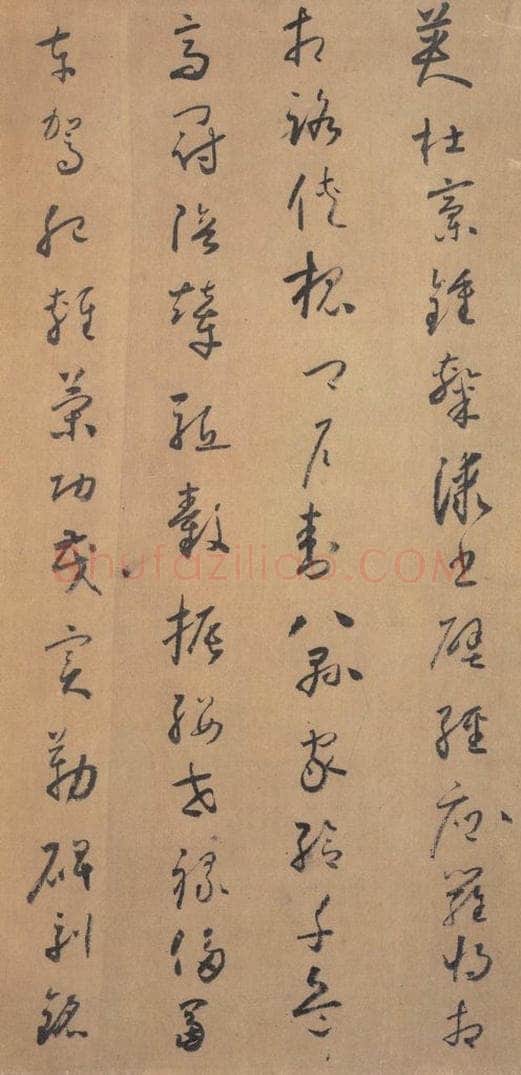 英杜稾鍾隸漆書壁經府羅將相
相路俠槐卿戶封八縣家給千兵
高冠陪輦驅轂振纓世祿侈富
車駕肥輕策功茂實勒碑刻銘
shufaziliao.COM